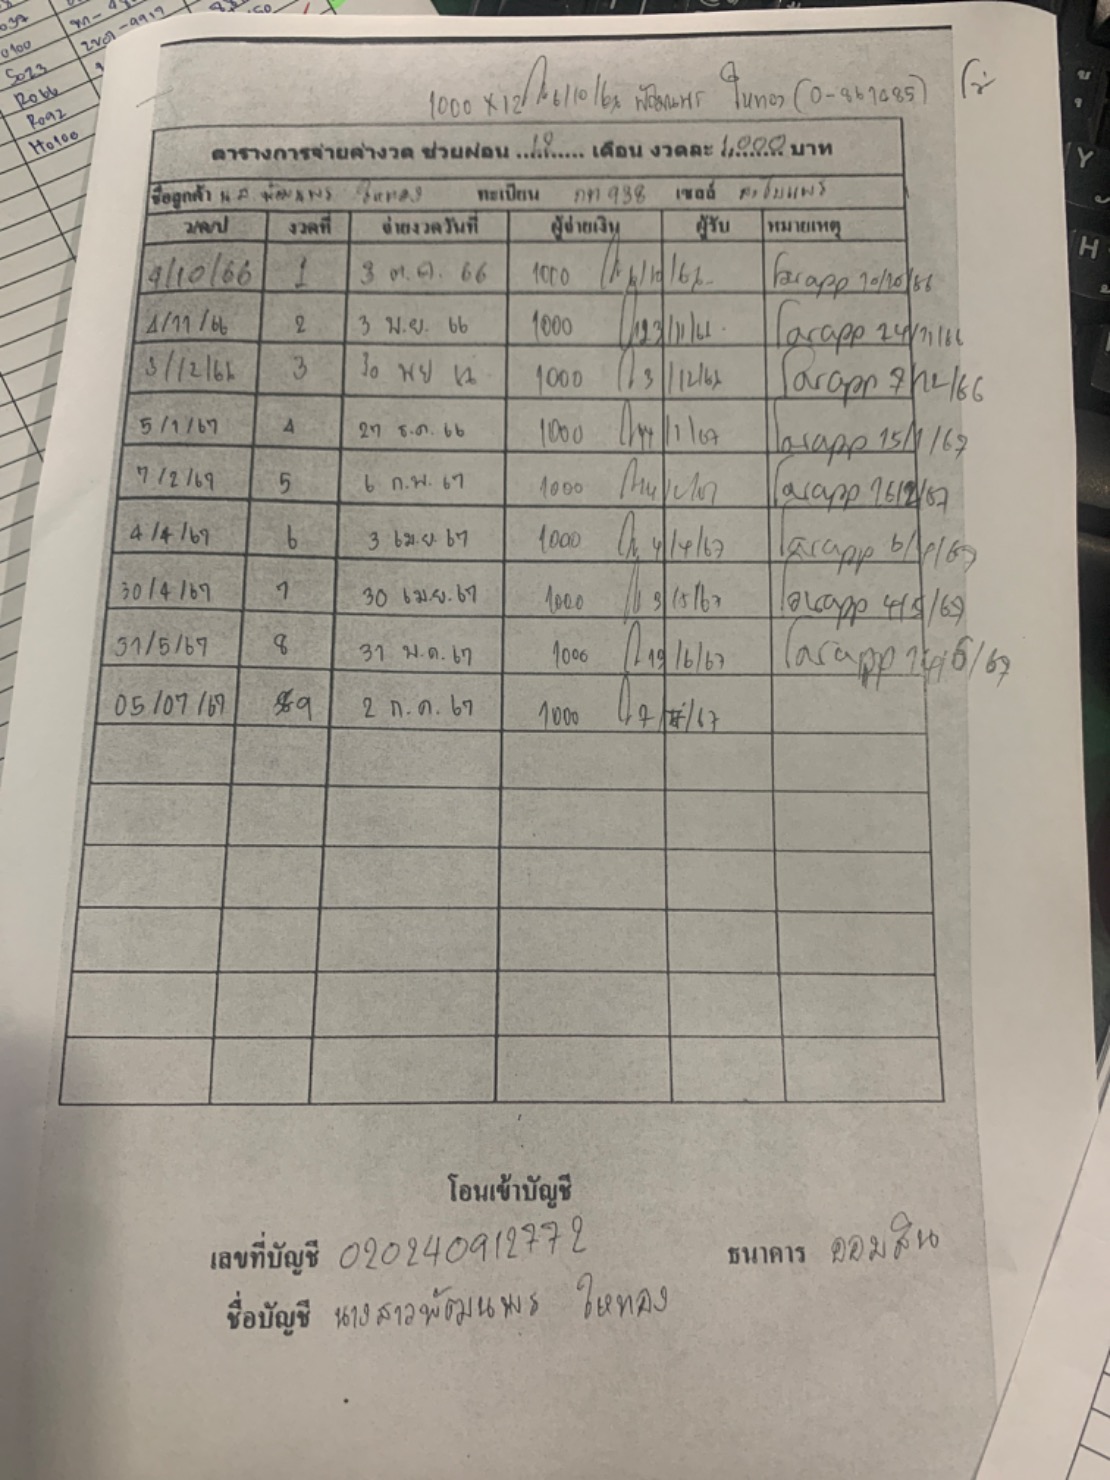 037
0100
S023
R066
R092
H0100
1000 x 12 6/10/66 พัฒนพร ใหทอง (0-867085)
ตารางการจ่ายค่างวด ช่วยผ่อน ...12... เดือน งวดละ 1,000 บาท
ชื่อลูกค้า น.ส พัฒนพร ใหทอง ทะเบียน กท 938 เซลล์
ว/ด/ป งวดที่ จ่ายงวดวันที่ ผู้จ่ายเงิน ผู้รับ หมายเหตุ
9/10/66 1 3 ต.ค. 66 1000 6/10/66 โอนapp 10/10/66
4/11/66 2 3 พ.ย. 66 1000 23/11/66 โอนapp 24/11/66
3/12/66 3 30 พย 66 1000 3/12/66 โอนapp 7/12/66
5/1/67 4 27 ธ.ค. 66 1000 14/1/67 โอนapp 15/1/67
7/2/67 5 6 ก.พ. 67 1000 โอนapp 16/2/67
4/4/67 6 3 เม.ย. 67 1000 4/4/67 โอนapp 6/4/67
30/4/67 7 30 เม.ย. 67 1000 3/5/67 โอนapp 4/5/67
31/5/67 8 31 พ.ค. 67 1000 13/6/67 โอนapp 14/6/67
05/07/67 9 2 ก.ค. 67 1000 7/7/67
โอนเข้าบัญชี
เลขที่บัญชี 020240912772 ธนาคาร ออมสิน
ชื่อบัญชี นางสาวพัฒนพร ใหทอง